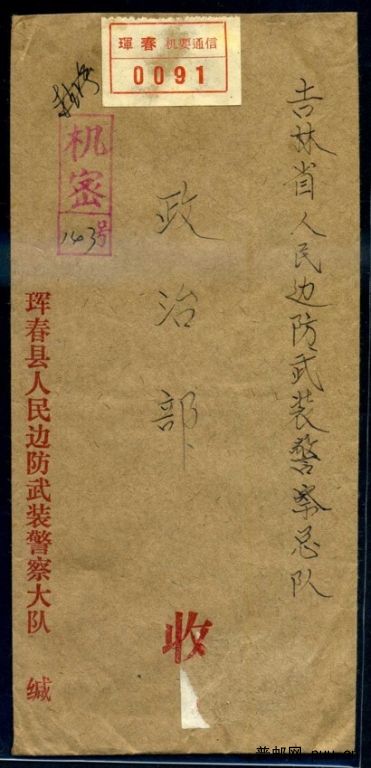 珲春 机要通信
0091
吉林省人民边防武装警察总队
政治部
收
机密
143号
珲春县人民边防武装警察大队 缄